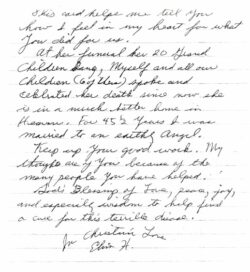 This card helps me tell you
how I feel in my heart for what
you did for us.
At her funeral her 20 Grand
Children Sang, Myself and all our
Children (6 of them) spoke and
celebrated her death since now she
is in a much better home in
Heaven. For 45 ½ Years I was
married to an earthly Angel.
Keep up your good work. My
thoughts are of you because of the
many people you have helped.
God's Blessing of Love, peace, joy,
and especially wisdom to help find
a cure for this terrible disease.
In Christian Love
H.